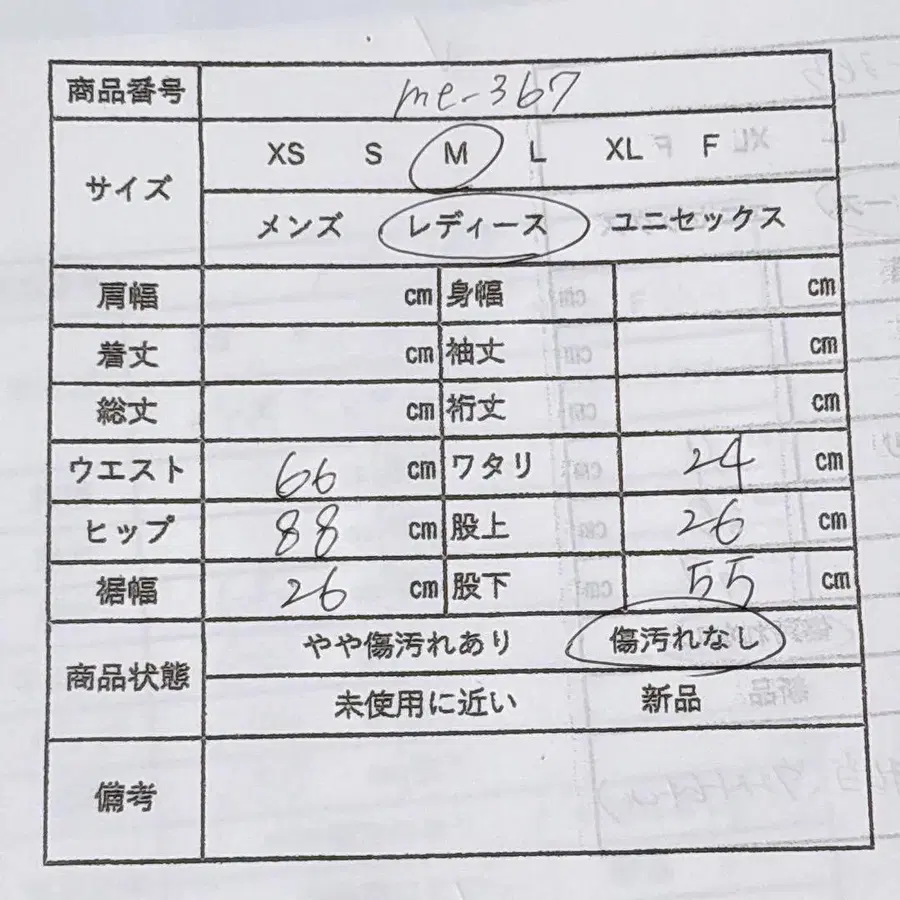 商品番号 me-367
サイズ XS S M L XL F
メンズ レディース ユニセックス
肩幅 cm 身幅 cm
着丈 cm 袖丈 cm
総丈 cm 裄丈 cm
ウエスト 66 cm ワタリ 24 cm
ヒップ 88 cm 股上 26 cm
裾幅 26 cm 股下 55 cm
商品状態 やや傷汚れあり 傷汚れなし
未使用に近い 新品
備考